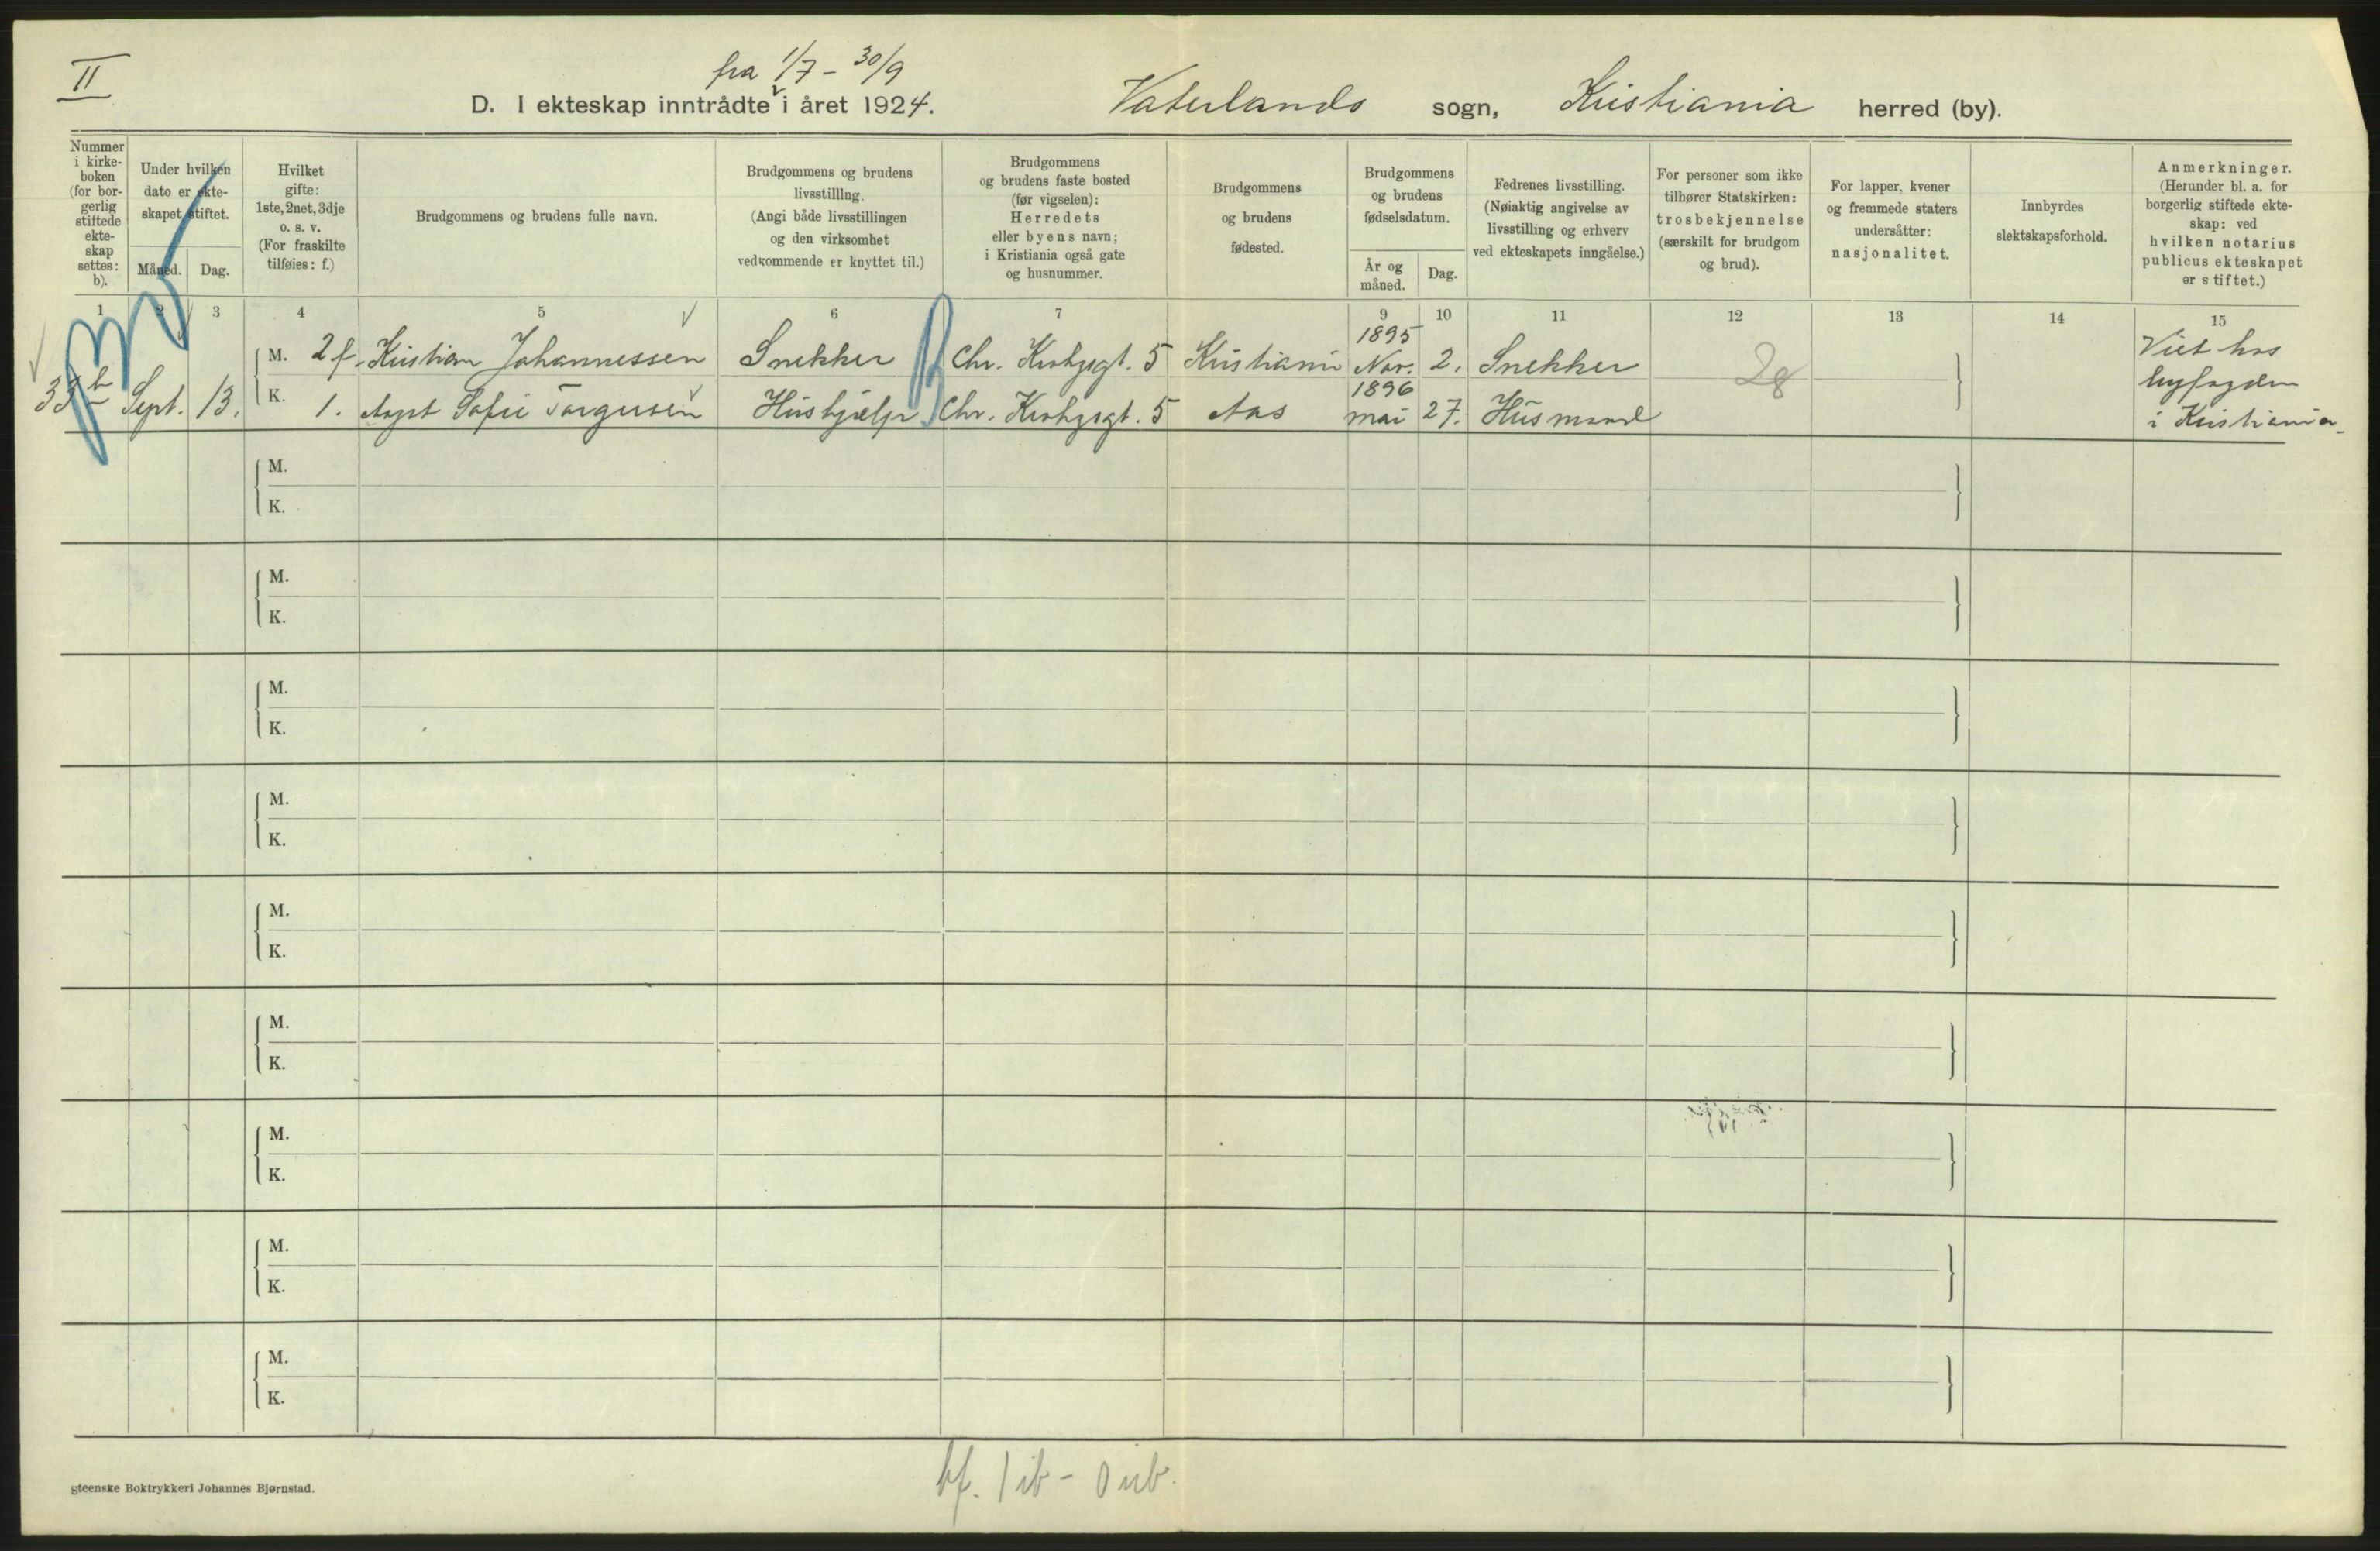 II
fra 1/7 - 30/9
D. I ekteskap inntrådte i året 1924. Vaterlands sogn, Kristiania herred (by).
Nummer
i kirke-
boken
(for bor-
gerlig
stiftede
ekte-
skap
settes:
b).
Under hvilken
dato er ekte-
skapet stiftet.
Måned. Dag.
Hvilket
gifte:
1ste, 2net, 3dje
o. s. v.
(For fraskilte
tilføies: f.)
Brudgommens og brudens fulle navn.
Brudgommens og brudens
livsstilllng.
(Angi både livsstillingen
og den virksomhet
vedkommende er knyttet til.)
Brudgommens
og brudens faste bosted
(før vigselen):
Herredets
eller byens navn;
i Kristiania også gate
og husnummer.
Brudgommens
og brudens
fødested.
Brudgommens
og brudens
fødselsdatum.
År og
måned.
Dag.
Fedrenes livsstilling.
(Nøiaktig angivelse av
livsstilling og erhverv
ved ekteskapets inngåelse.)
For personer som ikke
tilhører Statskirken:
trosbekjennelse
(særskilt for brudgom
og brud).
For lapper, kvener
og fremmede staters
undersåtter:
nasjonalitet.
Innbyrdes
slektskapsforhold.
Anmerkninger.
(Herunder bl. a. for
borgerlig stiftede ekte-
skap: ved
hvilken notarius
publicus ekteskapet
er stiftet.)
1 2 3 4 5 6 7 8 9 10 11 12 13 14 15
33 b Sept. 13.
M. 2 f. Kristian Johannessen Snekker Chr. Krohgsgt. 5 Kristiania 1895 Nov. 2. Snekker
K. 1. Aagot Sofie Torgersen Hushjælp Chr. Krohgsgt. 5 Aas 1896 mai 27. Husmand
28
Viet hos
byfogden
i Kristiania
M.
K.
M.
K.
M.
K.
M.
K.
M.
K.
M.
K.
M.
K.
M.
K.
M.
K.
bf. 1 ib - 0 uib.
gteenske Boktrykkeri Johannes Bjørnstad.